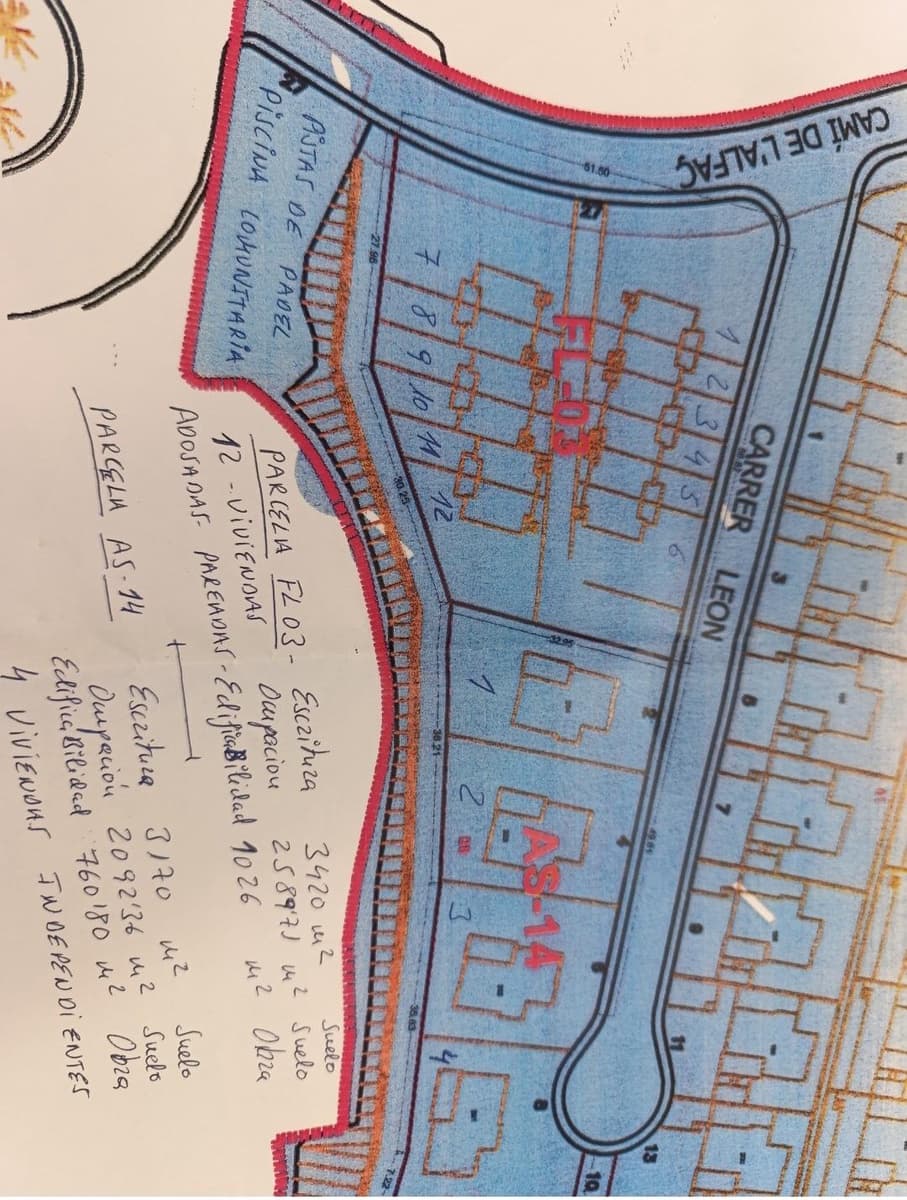 CAMÍ DE L'ALFAÇ
CARRER LEON
51.60
27
27
27.95
30.25
32.95
36.21
49.61
36.63
7.32
FL-03
AS-14
1 2 3 4 5 6
7 8 9 10 11 12
1 2 3 4
1
3
5
7
9
11
13
2
4
6
8
10
PISTAS DE PADEL
PISCINA COMUNITARIA
PARCELA FL03- Escritura 3420 m² Suelo
12 - VIVIENDAS Ocupacion 2589'71 m² Suelo
ADOSADAS PAREADAS - Edificabilidad 1026 m² Obra
PARCELA AS-14 Escritura 3170 m² Suelo
Ocupación 2092'36 m² Suelo
Edificabilidad 760'80 m² Obra
4 VIVIENDAS INDEPENDIENTES